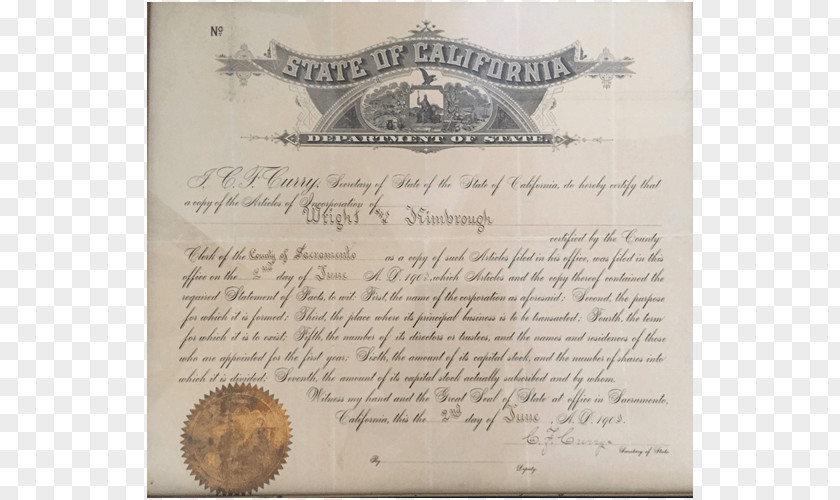 Nº
STATE OF CALIFORNIA
DEPARTMENT OF STATE.
I, C. F. Curry, Secretary of State of the State of California, do hereby certify that
a copy of the Articles of Incorporation of
Wright & Kimbrough
certified by the County
Clerk of the County of Sacramento as a copy of such Articles filed in his office, was filed in this
office on the 2nd day of June A. D. 1903, which Articles and the copy thereof contained the
required Statement of Facts, to wit: First, the name of the corporation as aforesaid; Second, the purpose
for which it is formed; Third, the place where its principal business is to be transacted; Fourth, the term
for which it is to exist; Fifth, the number of its directors or trustees, and the names and residences of those
who are appointed for the first year; Sixth, the amount of its capital stock, and the number of shares into
which it is divided; Seventh, the amount of its capital stock actually subscribed and by whom.
Witness my hand and the Great Seal of State at office in Sacramento,
California, this the 2nd day of June A. D. 1903.
C. F. Curry
Secretary of State.
By
Deputy